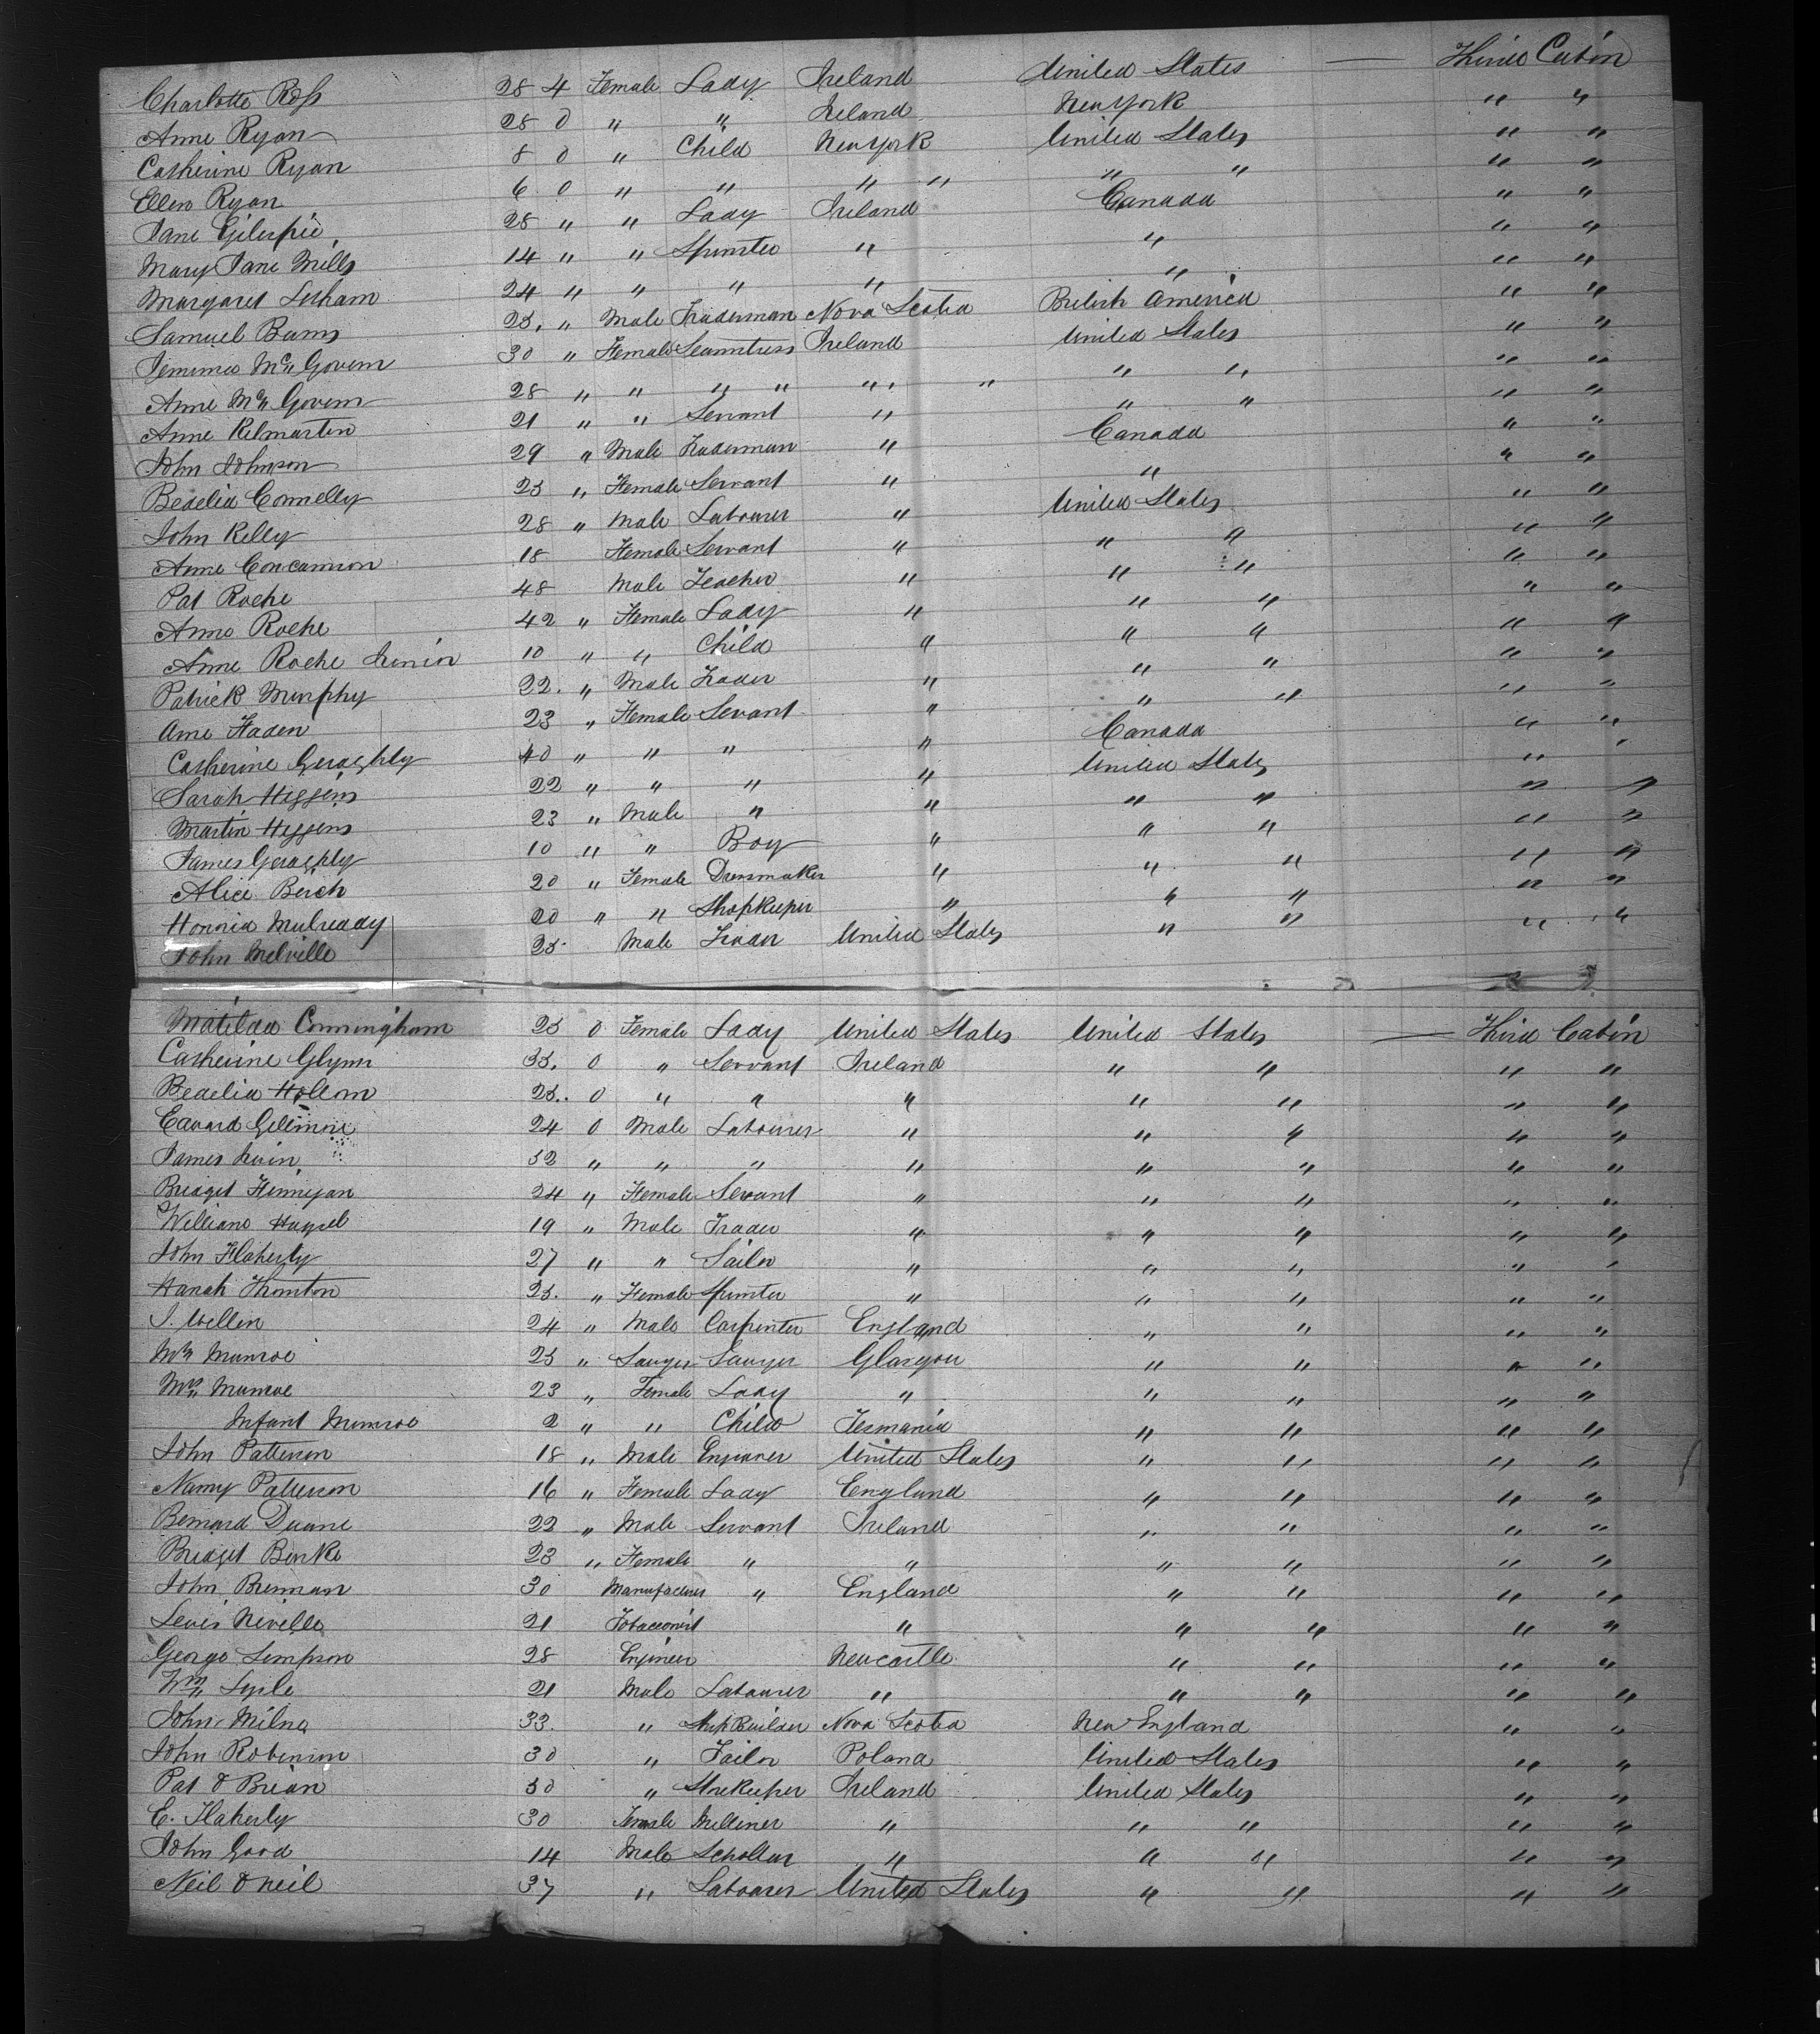 Charlotte Ross 28 4 Female Lady Ireland United States — Third Cabin
Anne Ryan 28 0 " " Ireland New York " "
Catherine Ryan 8 0 " Child New York United States " "
Ellen Ryan 6 0 " " " " " " " "
Jane Gilespie 28 " " Lady Ireland Canada " "
Mary Jane Mills 14 " " Spinster " " " "
Margaret Leham 24 " " " " " " "
Samuel Barns 25 " Male Traderman Nova Scotia British America " "
Jemima Mc Govern 30 " Female Seamstress Ireland United States " "
Anne Mc Govern 28 " " " " " " " " " "
Anne Kilmartin 21 " " Servant " " " " "
John Johnson 29 " Male Traderman " Canada " "
Bedelia Connelly 25 " Female Servant " " " "
John Kelly 28 " Male Labourer " United States " "
Anne Concannon 18 Female Servant " " " " "
Pat Roche 48 Male Teacher " " " " "
Anne Roche 42 " Female Lady " " " " "
Anne Roche Junior 10 " " Child " " " " "
Patrick Murphy 22 " Male Trader " " " " "
Anne Haden 23 " Female Servant " " " " "
Catherine Geraghty 40 " " " " Canada " "
Sarah Higgins 22 " " " " United States " "
Martin Higgins 23 " Male " " " " " "
James Geraghty 10 " " Boy " " " " "
Alice Beirh 20 " Female Dressmaker " " " " "
Honoria Mulready 20 " " Shopkeeper " " " " "
John Melville 25 Male Trader United States " " " "
Matilda Cunningham 25 0 Female Lady United States United States — Third Cabin
Catherine Glynn 35 0 " Servant Ireland " " " "
Bedelia Holloran 25 0 " " " " " " "
Edward Gilmore 24 0 Male Labourer " " " " "
James 32 " " " " " " " "
Bridget Finnegan 24 " Female Servant " " " " "
William 19 " Male Trader " " " " "
John Flaherty 27 " " Sailor " " " " "
Hanah Thornton 25 " Female Spinster " " " " "
J. Wellin 24 " Male Carpenter England " " " "
Mr Munroe 25 " Sawyer Sawyer Glasgow " " " "
Mrs Munroe 23 " Female Lady " " " " "
Infant Munroe 2 " " Child Tesmania " " " "
John Patterson 18 " Male Engraver United States " " " "
Nanny Patterson 16 " Female Lady England " " " "
Bernard Duane 22 " Male Servant Ireland " " " "
Bridget Burke 23 " Female " " " " " "
John Brennan 30 Manufacturer " England " " " "
Lewis Neville 21 Tobacconist " " " " "
George Simpson 28 Engineer Newcastle " " " "
Wm Lyile 21 Male Labourer " " " " "
John Milna 33 " Ship Builder Nova Scotia New England " "
John Robinson 30 " Tailor Poland United States " "
Pat O Brian 50 " Storekeeper Ireland United States " "
E. Flaherty 30 Female Milliner " " " " "
John Good 14 Male Schollar " " " " "
Neil O neil 37 " Labourer United States " " " "